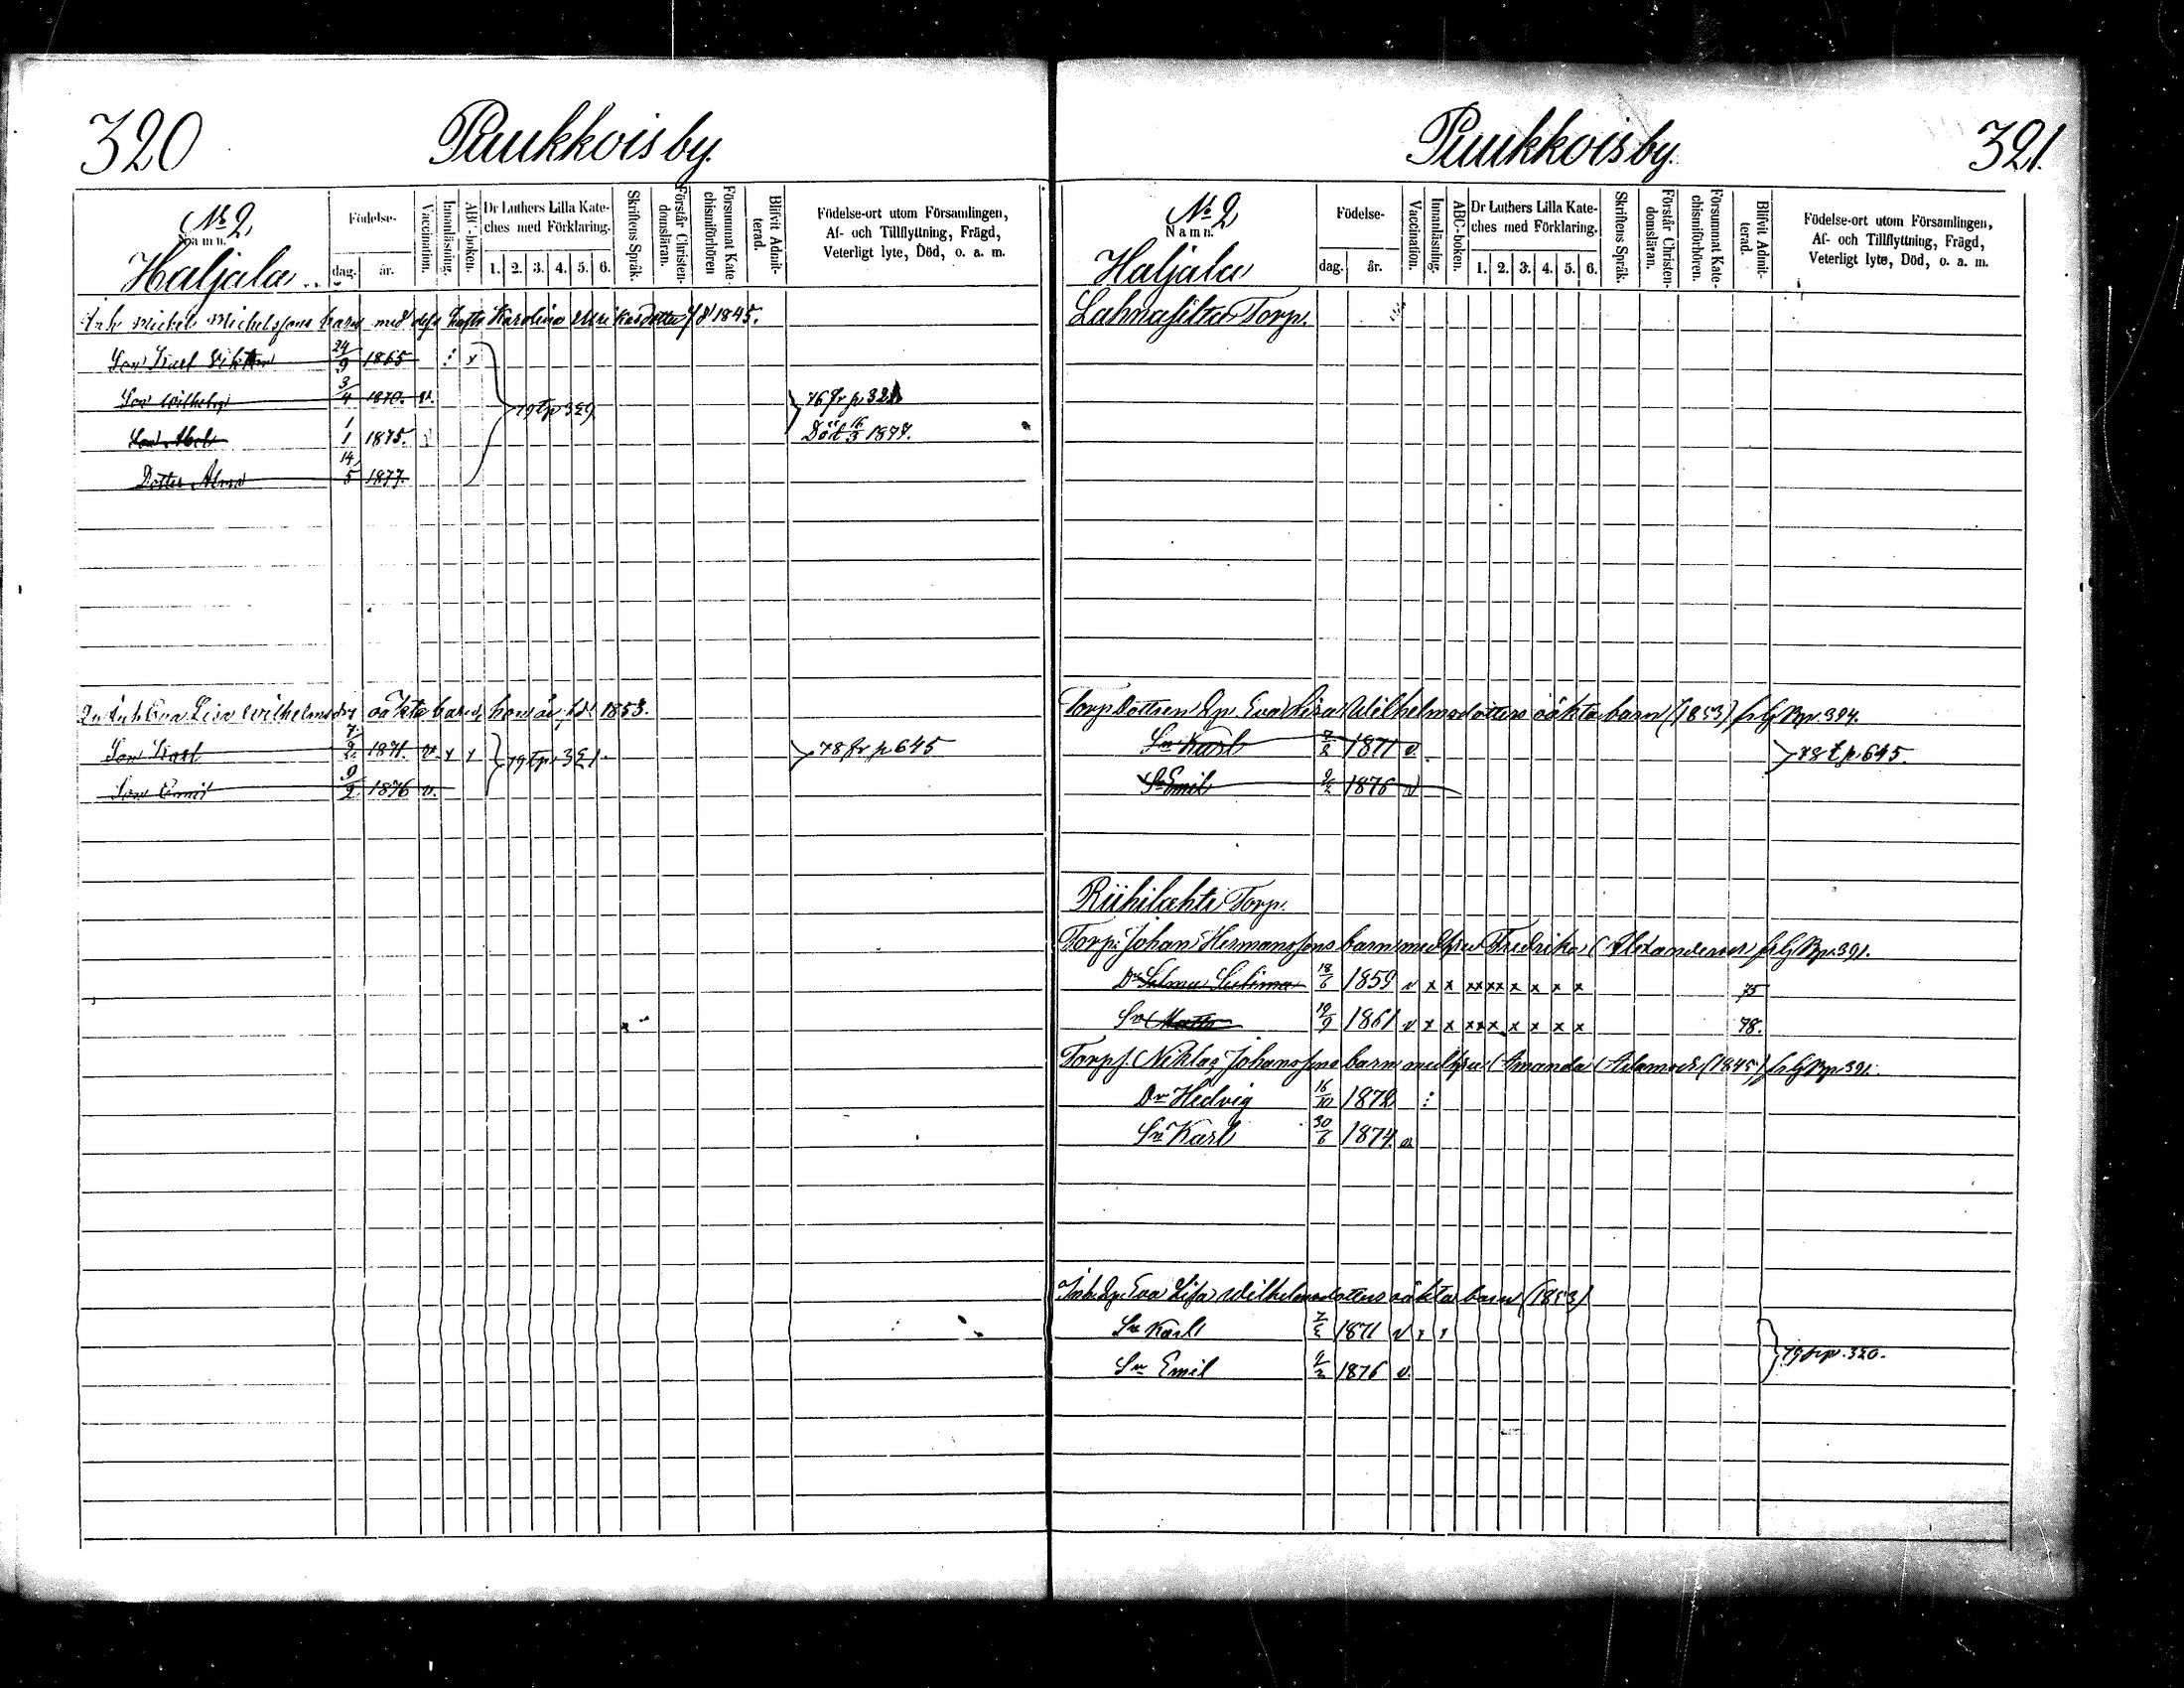 320 Puukkois by.
No 2, Namn. Haljala
Födelse- dag. år.
Vaccination.
Innanläsning.
ABC-boken.
Dr Luthers Lilla Kateches med Förklaring. 1. 2. 3. 4. 5. 6.
Skriftens Språk.
Förstår Christendomsläran.
Försummat Katechismiförhören
Blifvit Admitterad.
Födelse-ort utom Församlingen,
Af- och Tillflyttning, Frägd,
Veterligt lyte, Död, o. a. m.
Inh Michel Michelssons barn med dess hustr Karolina f d 1845.
Son Karl 24/9 1865 x
Son Wilhelm 3/4 1870. v. 79 tp 329 76 fr p 321
Son Abel 1/1 1875. Död 16/3 1877.
Dotter Alma 14/5 1877.
Eva Lisa Wilhelmsdrs oäkta barn, hon är fdd 1853.
Son Karl 7/2 1871. v. x x 79 tp. 321. 78 fr p 645
Son Emil 9/2 1876 v.
Puukkois by. 321.
No 2 Namn. Haljala
Födelse- dag. år.
Vaccination.
Innanläsning.
ABC-boken.
Dr Luthers Lilla Kateches med Förklaring. 1. 2. 3. 4. 5. 6.
Skriftens Språk.
Förstår Christendomsläran.
Försummat Katechismiförhören.
Blifvit Admitterad.
Födelse-ort utom Församlingen,
Af- och Tillflyttning, Frägd,
Veterligt lyte, Död, o. a. m.
Lahnasilta Torp.
Torp Dottren Qp. Eva Lisa Wilhelmsdotters oäkta barn (1853) frG Bp. 394.
Sn Karl 7/2 1871 v. 78 t p 645.
Sn Emil 9/2 1876 v
Riihilahti Torp.
Torp. Johan Hermanssons barn med hu Fredrika Alexandersd frG Bp. 391.
Dr Selma Serafina 18/6 1859 v x x xx xx x x x x 75
Sn Matts 19/9 1861 v x x xx x x x x x 78.
Torp f. Niklas Johanssons barn med hu Amanda Adamsdr (1845) frG Bp 391.
Dr Hedvig 16/10 1872
Sn Karl 30/6 1874 v.
Inh. Qp. Eva Lisa Wilhelmsdotters oäkta barn (1853)
Sn Karl 7/2 1871 v x x
Sn Emil 9/2 1876 v. 79 fr p. 320.